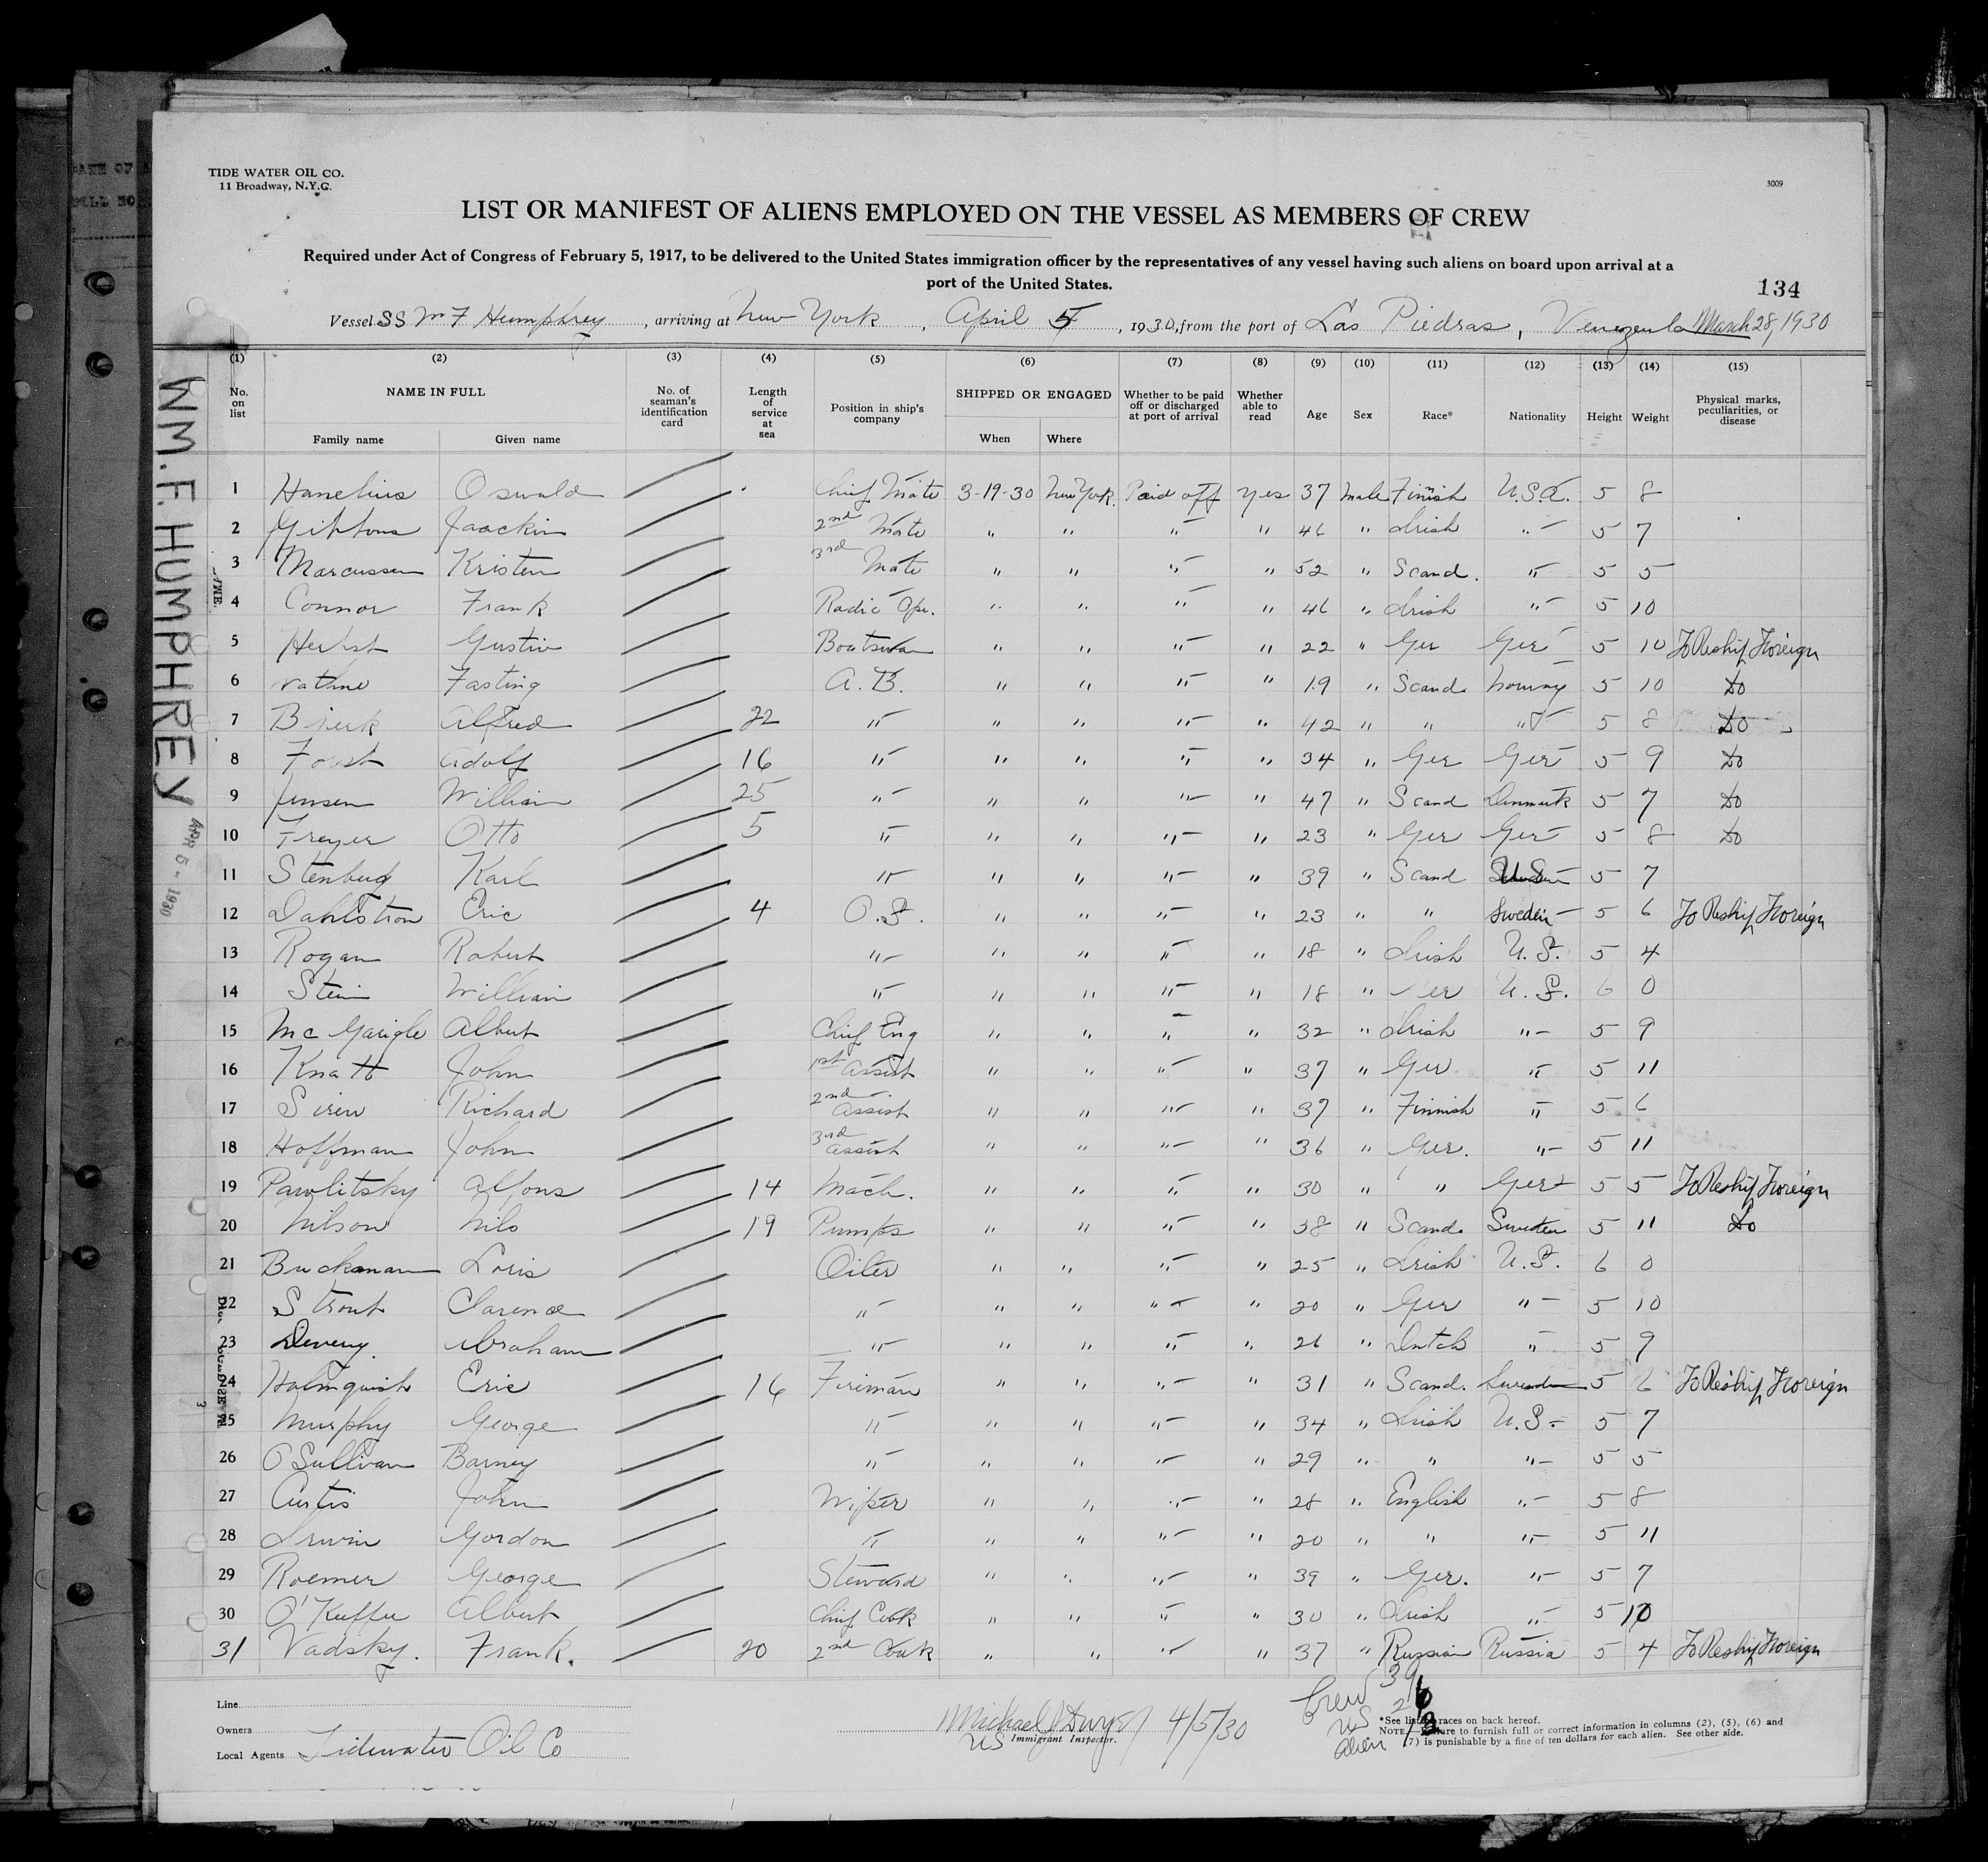 TIDE WATER OIL CO.
11 Broadway, N.Y.C.
3009
LIST OR MANIFEST OF ALIENS EMPLOYED ON THE VESSEL AS MEMBERS OF CREW
Required under Act of Congress of February 5, 1917, to be delivered to the United States immigration officer by the representatives of any vessel having such aliens on board upon arrival at a
port of the United States.
134
Vessel SS Wm F Humphrey, arriving at New York, April 5, 1930, from the port of Las Piedras, Venezuela March 28, 1930
WM. F. HUMPHREY
APR 5 - 1930
(1) (2) (3) (4) (5) (6) (7) (8) (9) (10) (11) (12) (13) (14) (15)
No. on list NAME IN FULL Family name Given name No. of seaman's identification card Length of service at sea Position in ship's company SHIPPED OR ENGAGED When Where Whether to be paid off or discharged at port of arrival Whether able to read Age Sex Race* Nationality Height Weight Physical marks, peculiarities, or disease
1 Hanelius Oswald Chief Mate 3-19-30 New York Paid off Yes 37 Male Finish U.S.A. 5 8
2 Gibbons Joackin 2nd Mate " " " " 46 " Irish " 5 7
3 Marcussen Kristen 3rd Mate " " " " 52 " Scand. " 5 5
4 Connor Frank Radio Ope. " " " " 46 " Irish " 5 10
5 Herbst Gustiv Boatswan " " " " 22 " Ger Ger 5 10 To Reship Foreign
6 Fasting A.B. " " " " 19 " Scand. Norway 5 10 Do
7 Alfred 22 " " " " " 42 " " " 5 8 Do
8 Adolf 16 " " " " " 34 " Ger Ger 5 9 Do
9 Jensen William 25 " " " " " 47 " Scand Denmark 5 7 Do
10 Freyer Otto 5 " " " " " 23 " Ger Ger 5 8 Do
11 Stenbug Karl " " " " " 39 " Scand U.S. 5 7
12 Dahlstron Eric 4 O.S. " " " " 23 " " Sweden 5 6 To Reship Foreign
13 Rogan Robert " " " " " 18 " Irish U.S. 5 4
14 Stein William " " " " " 18 " Ger U.S. 6 0
15 Mc Garigle Albert Chief Eng " " " " 32 " Irish " 5 9
16 Knatt John 1st Assist " " " " 37 " Ger " 5 11
17 Siren Richard 2nd Assist " " " " 37 " Finnish " 5 6
18 Hoffman John 3rd Assist " " " " 36 " Ger. " 5 11
19 Pawlitsky Alfons 14 Mach. " " " " 30 " " Ger 5 5 To Reship Foreign
20 Nilson Nils 19 Pumps " " " " 38 " Scand. Sweden 5 11 Do
21 Buckman Loris Oiler " " " " 25 " Irish U.S. 6 0
22 Strout Clarence " " " " " 20 " Ger " 5 10
23 Deveny Abraham " " " " " 26 " Dutch " 5 9
24 Holmquist Eric 16 Fireman " " " " 31 " Scand. Sweden 5 6 To Reship Foreign
25 Murphy George " " " " " 34 " Irish U.S. 5 7
26 O Sullivan Barney " " " " " 29 " " " 5 5
27 Curtis John Wiper " " " " 28 " English " 5 8
28 Irwin Gordon " " " " " 20 " " " 5 11
29 Roemer George Steward " " " " 39 " Ger. " 5 7
30 O'Keeffee Albert Chief Cook " " " " 30 " Irish " 5 10
31 Vadsky. Frank. 20 2nd Cook " " " " 37 " Russian Russia 5 4 To Reship Foreign
Line
Owners
Local Agents Tidewater Oil Co
Michael J Dwyer 4/5/30
US Immigrant Inspector.
Crew
US
Alien
*See list of races on back hereof.
NOTE.—Failure to furnish full or correct information in columns (2), (5), (6) and
(7) is punishable by a fine of ten dollars for each alien. See other side.